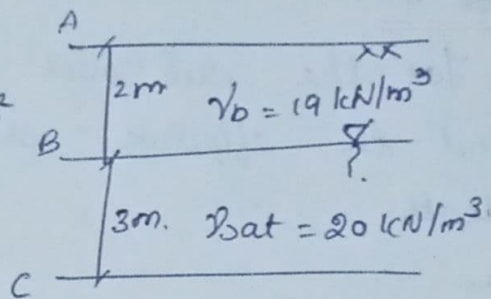 A
2m γb = 19 kN/m³
B
3m. γsat = 20 kN/m³
C